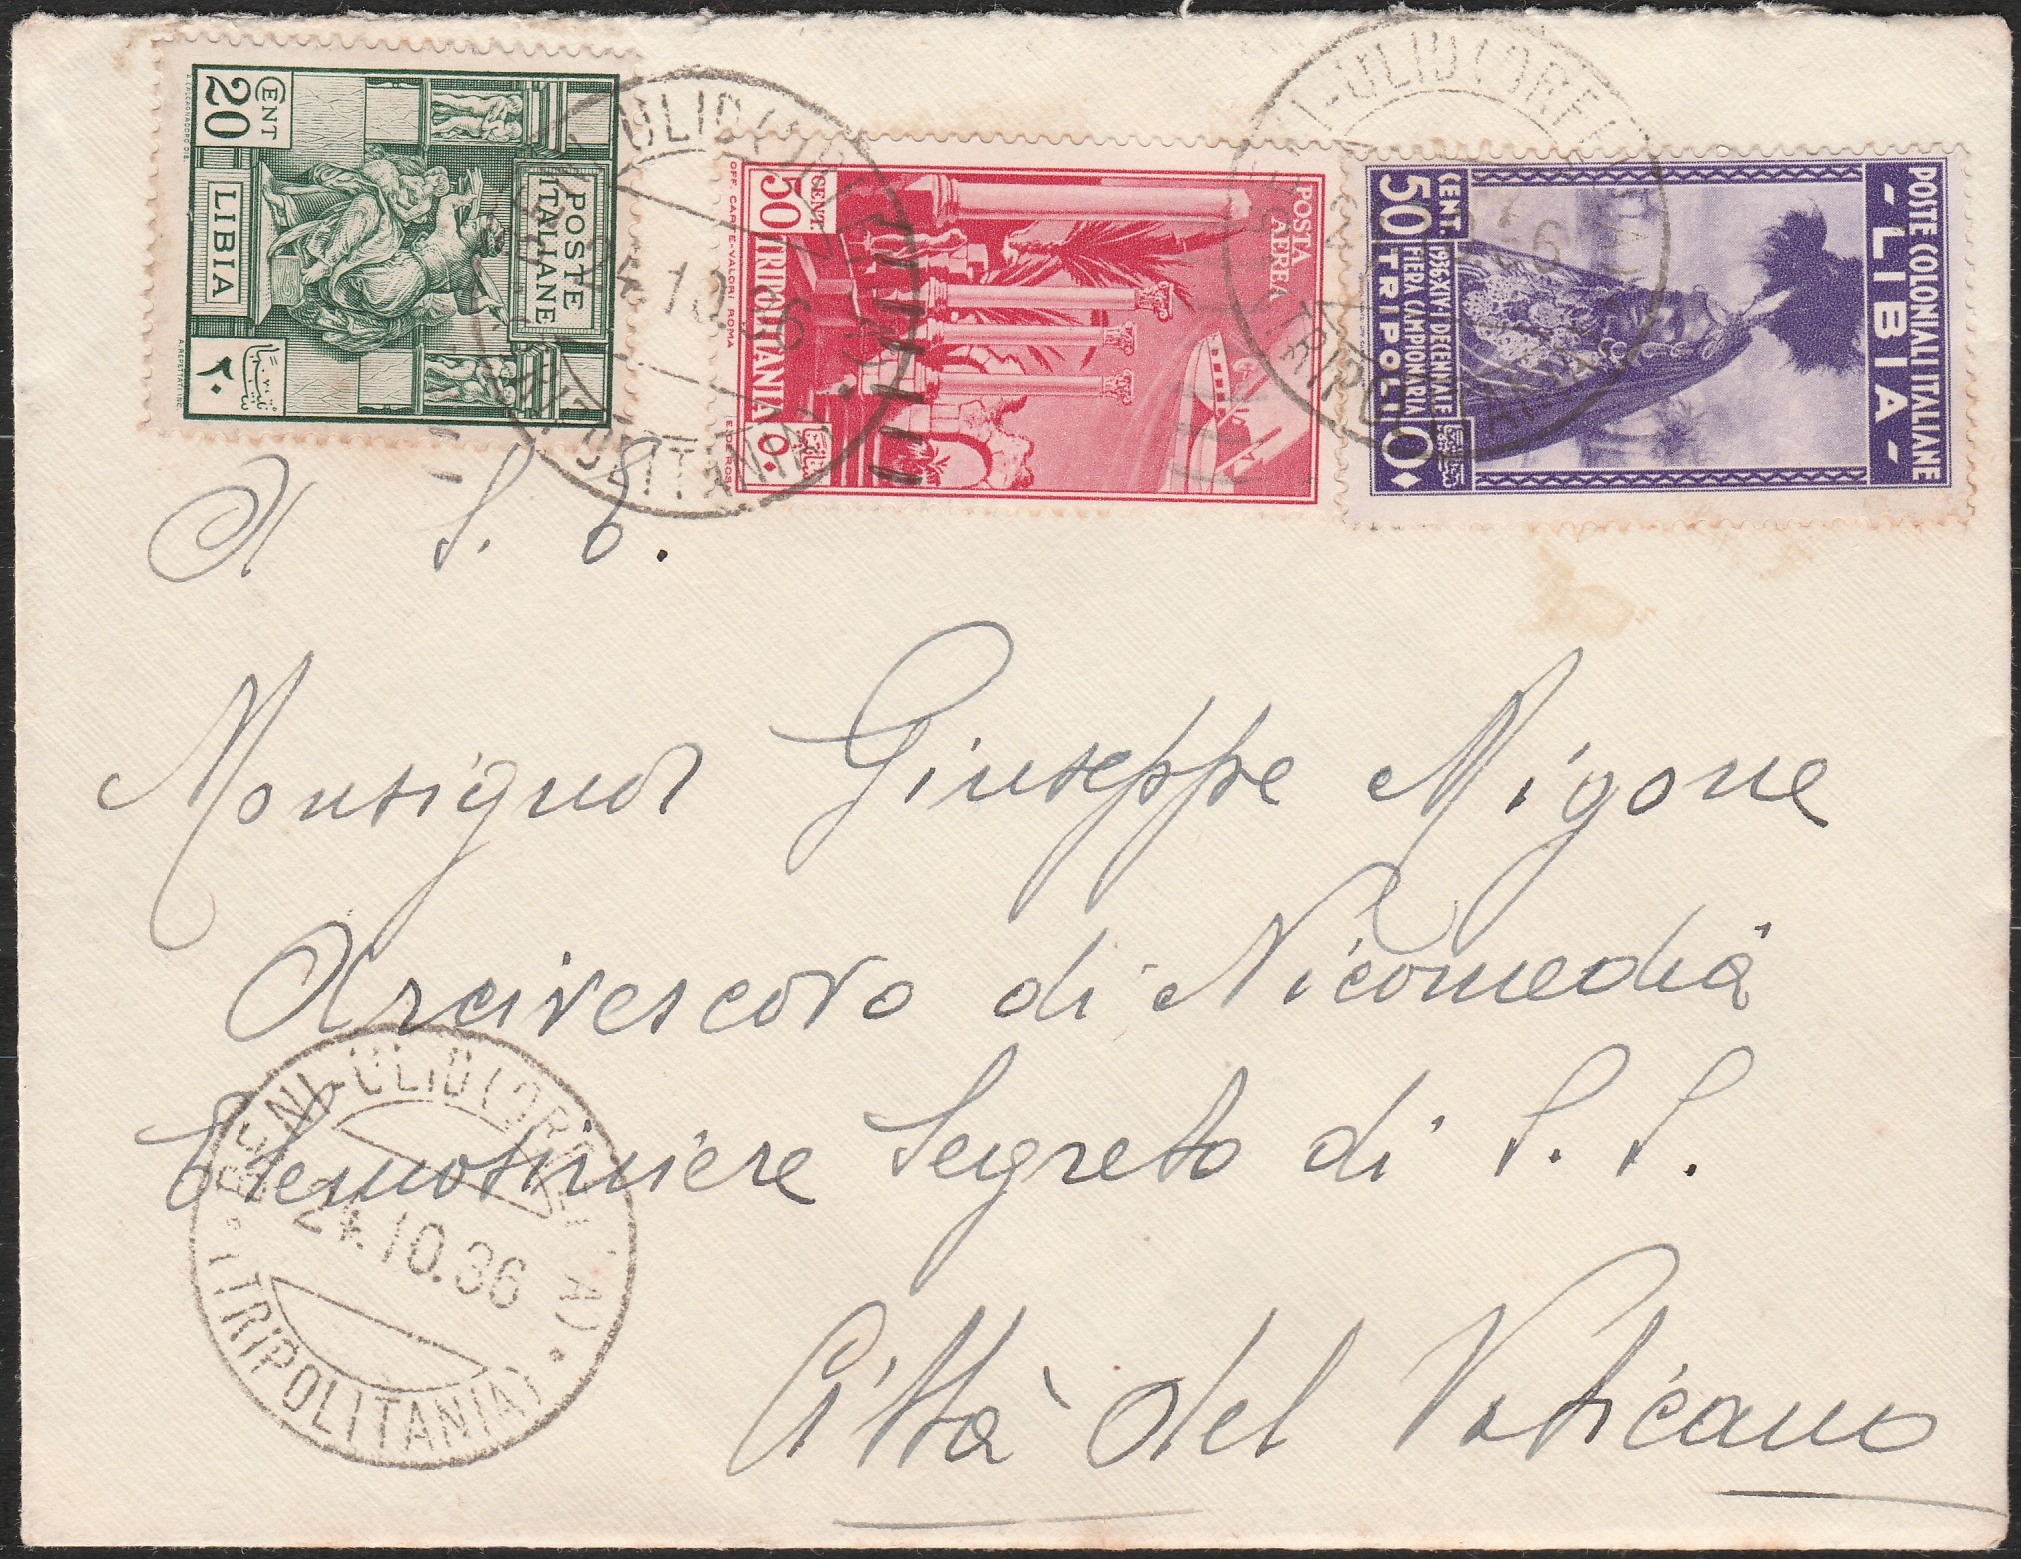 CENT 20
LIBIA
POSTE ITALIANE
٢٠
POSTA AEREA
CENT. 50 TRIPOLITANIA
٥٠
OFF. CARTE-VALORI ROMA
POSTE COLONIALI ITALIANE
- LIBIA -
1936-XIV-I DECENNALE
CENT. 50 FIERA CAMPIONARIA
TRIPOLI
A S. E.
Monsignor Giuseppe Migone
Arcivescovo di Nicomedia
Elemosiniere Segreto di S. S.
Città del Vaticano
BENI-ULID (ORFELLA)
24.10.36
(TRIPOLITANIA)